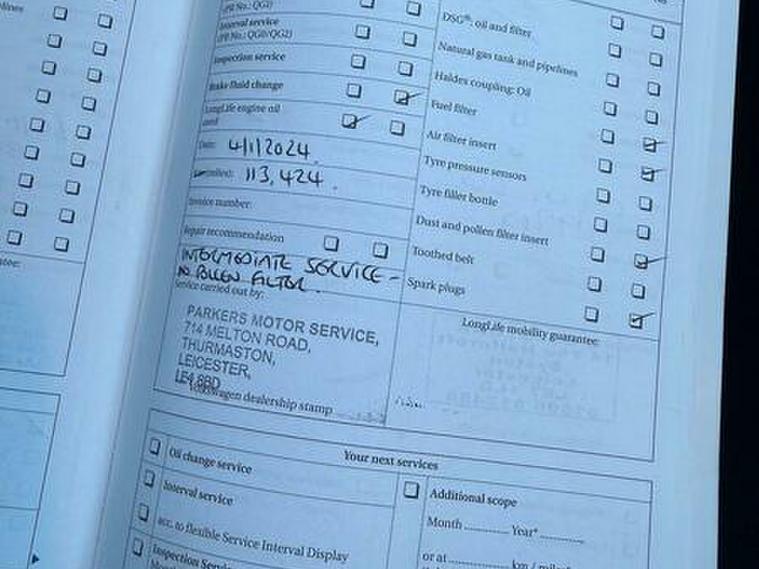 (PR No.: QG2)
Interval service
(PR No.: QG0/QG2)
Inspection service
Brake fluid change
LongLife engine oil
used
Date: 4/1/2024.
113,424.
Invoice number:
Repair recommendation
INTERMEDIATE SERVICE -
NO POLLEN FILTER.
Service carried out by:
PARKERS MOTOR SERVICE,
714 MELTON ROAD,
THURMASTON,
LEICESTER,
LE4 8BD
Volkswagen dealership stamp
DSG®: oil and filter
Natural gas tank and pipelines
Haldex coupling: Oil
Fuel filter
Air filter insert
Tyre pressure sensors
Tyre filler bottle
Dust and pollen filter insert
Toothed belt
Spark plugs
LongLife mobility guarantee:
Your next services
Oil change service
Interval service
acc. to flexible Service Interval Display
Inspection
Additional scope
Month ............ Year* ............
or at ............ km /